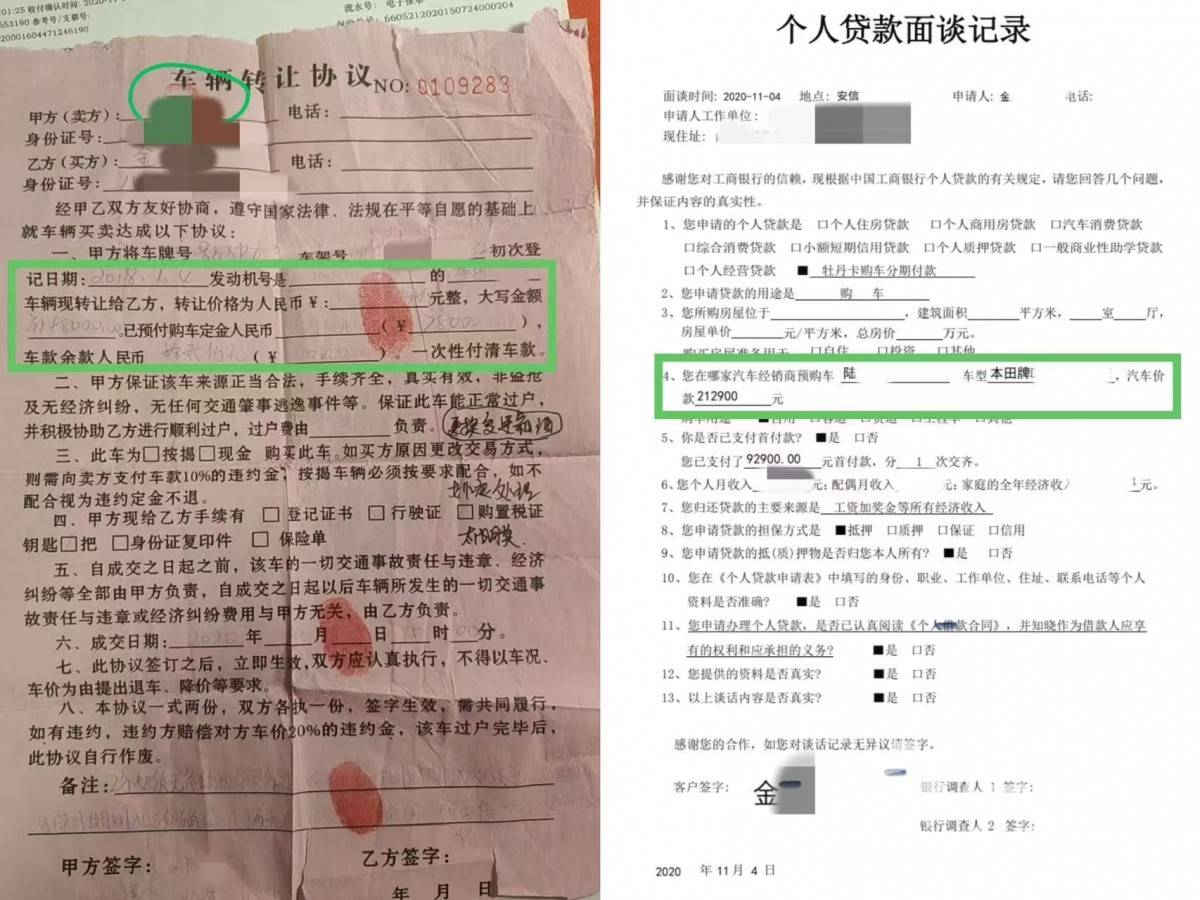 01:25 收付确认时间:2020-11
流水号: 电子保单
553190 参考号/支票号:
660521202015072400020​4
20001604471246190
车辆转让协议 NO: 0109283
甲方(卖方): 电话:
身份证号:
乙方(买方): 金 电话:
身份证号:
经甲乙双方友好协商,遵守国家法律、法规在平等自愿的基础上
就车辆买卖达成以下协议:
一、甲方将车牌号 车架号 初次登
记日期: 2018.1.4 发动机号是 的
车辆现转让给乙方,转让价格为人民币¥: 元整,大写金额
已预付购车定金人民币 (¥ 78000 ),
车款余款人民币 (¥ )。一次性付清车款。
二、甲方保证该车来源正当合法,手续齐全,真实有效,非盗抢
及无经济纠纷,无任何交通肇事逃逸事件等。保证此车能正常过户,
并积极协助乙方进行顺利过户,过户费由 负责。
三、此车为□按揭□现金 购买此车。如买方原因更改交易方式,
则需向卖方支付车款10%的违约金,按揭车辆必须按要求配合,如不
配合视为违约定金不退。
四、甲方现给乙方手续有 □ 登记证书 □ 行驶证 □ 购置税证
钥匙□把 □身份证复印件 □ 保险单
五、自成交之日起之前,该车的一切交通事故责任与违章、经济
纠纷等全部由甲方负责,自成交之日起以后车辆所发生的一切交通事
故责任与违章或经济纠纷费用与甲方无关,由乙方负责。
六、成交日期: 2020 年 月 日 时 分。
七、此协议签订之后,立即生效,双方应认真执行,不得以车况、
车价为由提出退车、降价等要求。
八、本协议一式两份,双方各执一份,签字生效,需共同履行,
如有违约,违约方赔偿对方车价20%的违约金,该车过户完毕后,
此协议自行作废。
备注:
甲方签字: 乙方签字:
年 月 日
个人贷款面谈记录
面谈时间: 2020-11-04 地点: 安信 申请人: 金 电话:
申请人工作单位:
现住址:
感谢您对工商银行的信赖,现根据中国工商银行个人贷款的有关规定,请您回答几个问题,
并保证内容的真实性。
1、您申请的个人贷款是 □个人住房贷款 □个人商用房贷款 □汽车消费贷款
□综合消费贷款 □小额短期信用贷款 □个人质押贷款 □一般商业性助学贷款
□个人经营贷款 ■ 牡丹卡购车分期付款
2、您申请贷款的用途是 购 车
3、您所购房屋位于 ,建筑面积 平方米, 室 厅,
房屋单价 元/平方米,总房价 万元。
购买房屋准备用于 □自住 □投资 □其他
4、您在哪家汽车经销商预购车 陆 车型 本田牌 ,汽车价
款 212900 元
5、你是否已支付首付款? ■是 □否
您已支付了 92900.00 元首付款,分 1 次交齐。
6、您个人月收入 元;配偶月收入 元;家庭的全年经济收入 元。
7、您归还贷款的主要来源是 工资加奖金等所有经济收入
8、您申请贷款的担保方式是 ■抵押 □质押 □保证 □信用
9、您申请贷款的抵(质)押物是否归您本人所有? ■是 □否
10、您在《个人贷款申请表》中填写的身份、职业、工作单位、住址、联系电话等个人
资料是否准确? ■是 □否
11、您申请办理个人贷款,是否已认真阅读《个人借款合同》,并知晓作为借款人应享
有的权利和应承担的义务? ■是 □否
12、您提供的资料是否真实? ■是 □否
13、以上谈话内容是否真实? ■是 □否
感谢您的合作,如您对谈话记录无异议请签字。
客户签字: 金 银行调查人 1 签字:
银行调查人 2 签字:
2020 年 11 月 4 日